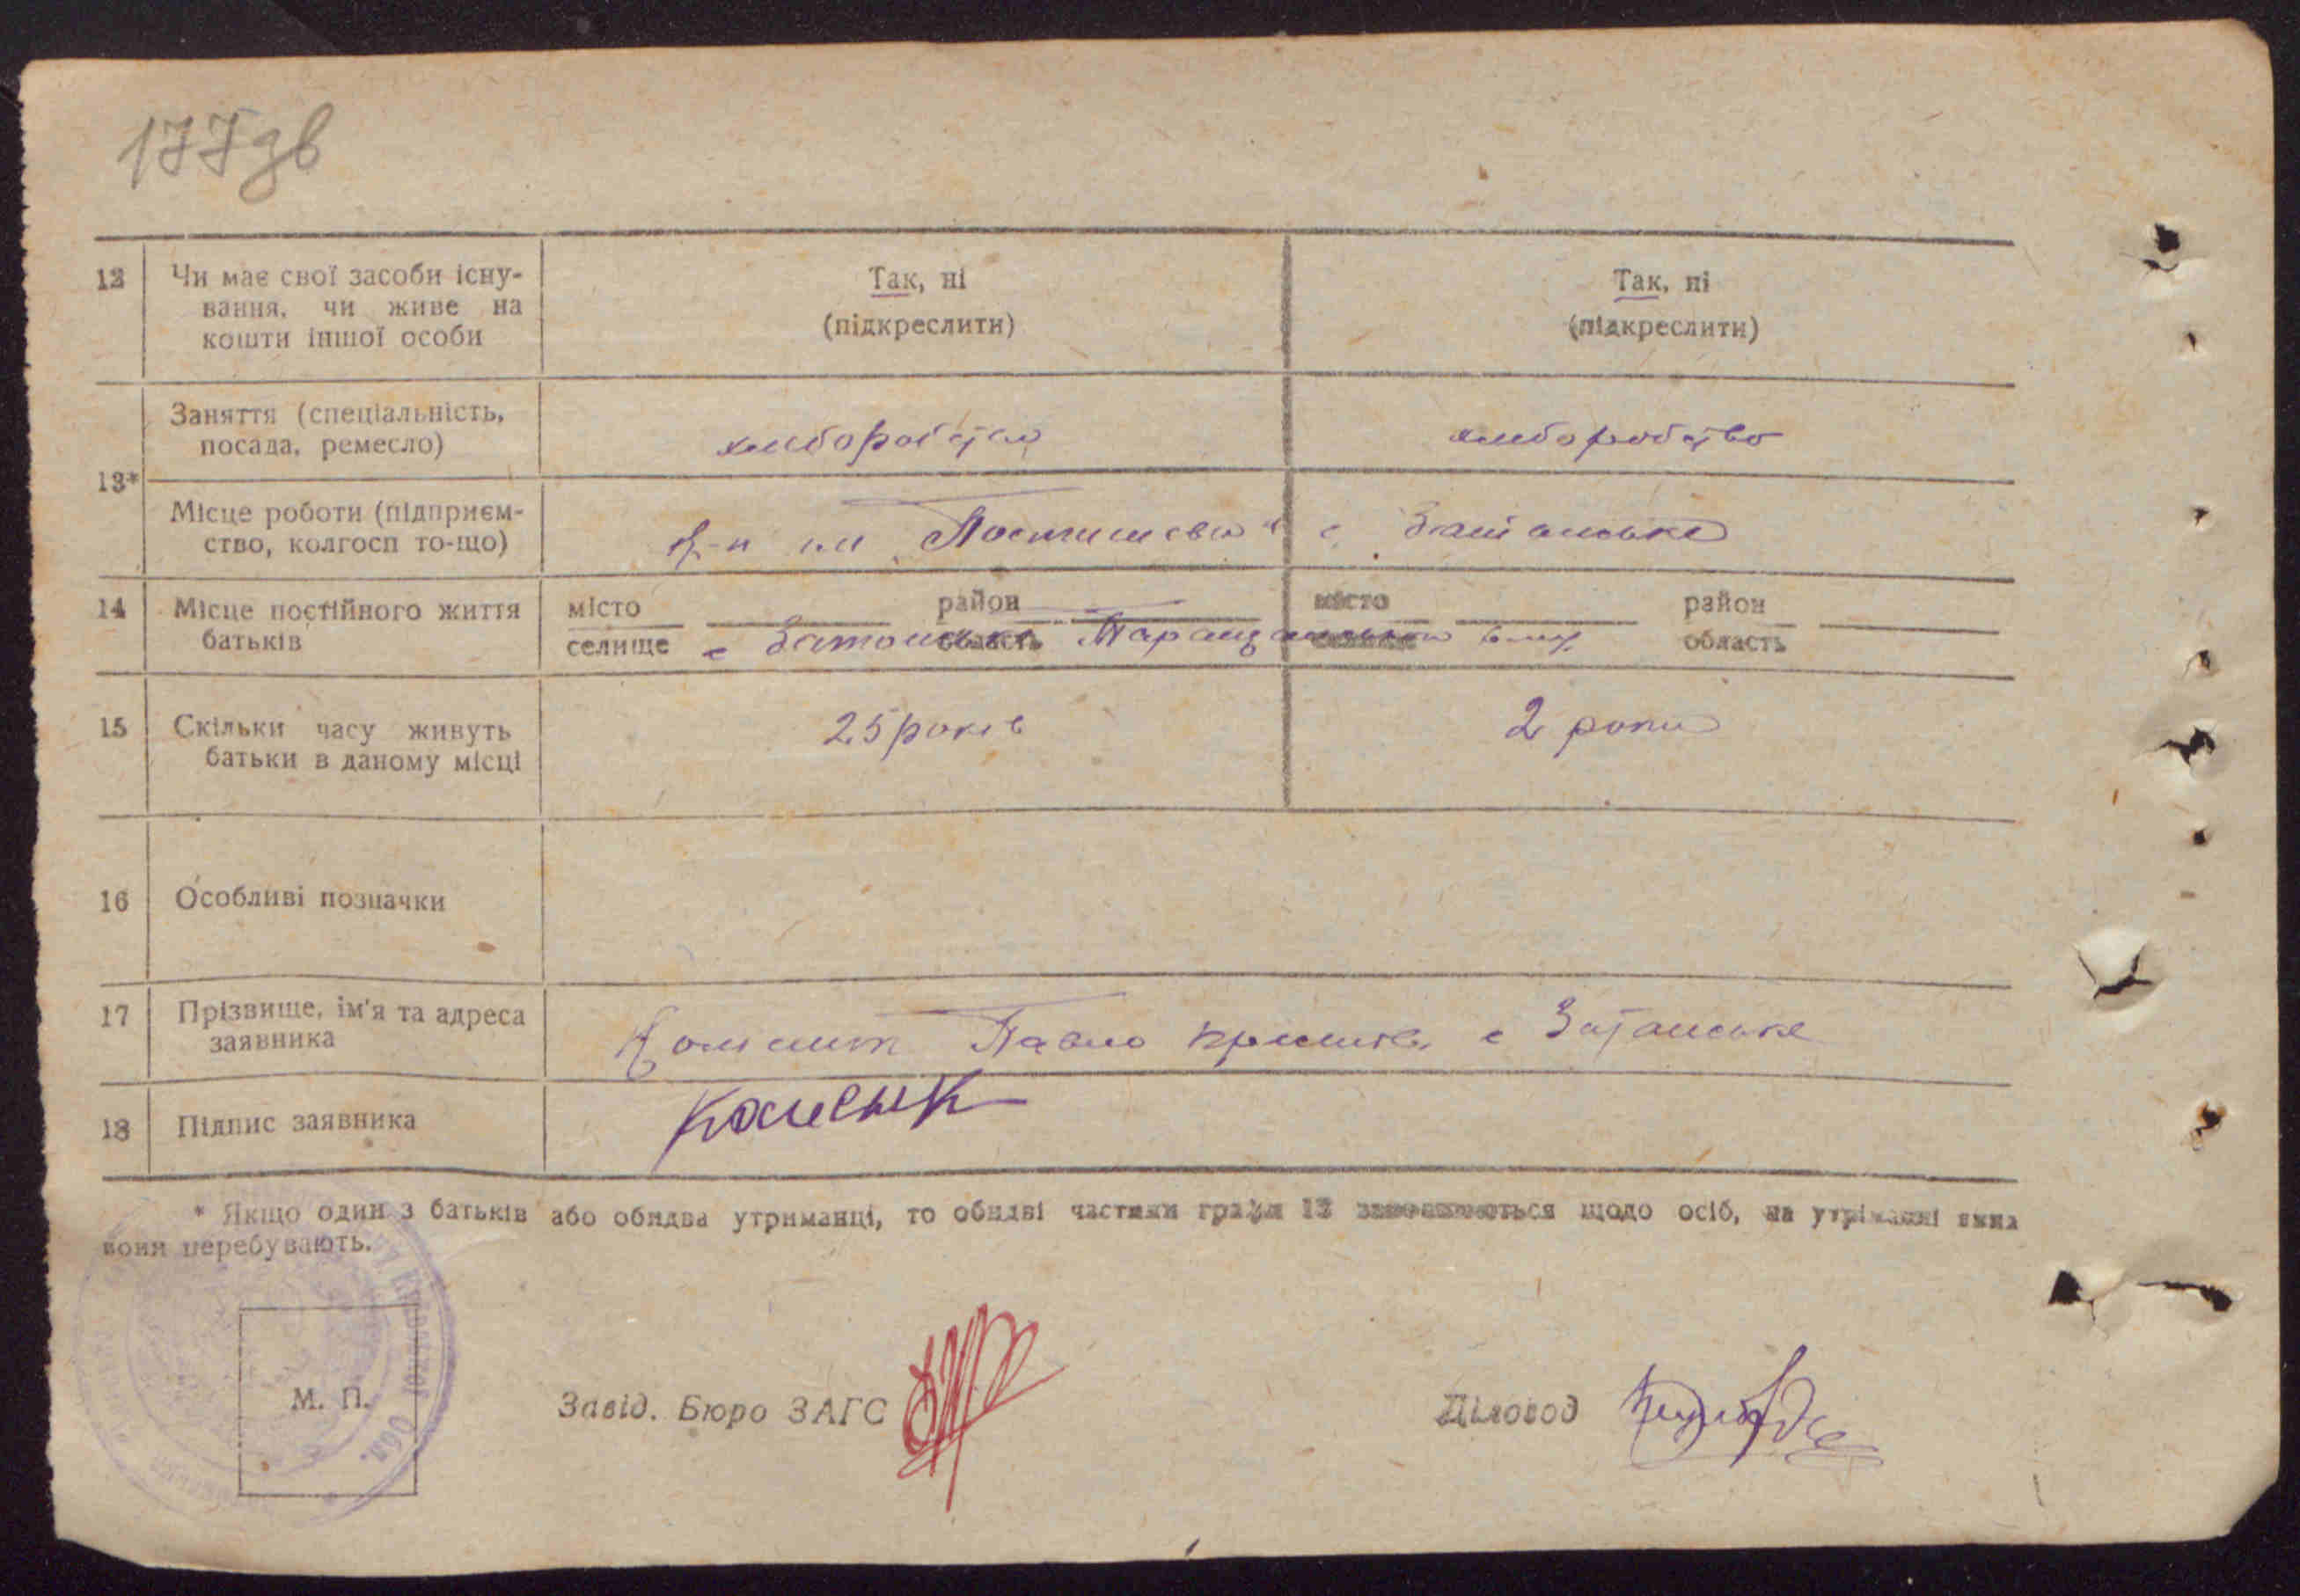 177зв
12 Чи має свої засоби існу- Так, ні Так, ні
вання, чи живе на (підкреслити) (підкреслити)
кошти іншої особи
Заняття (спеціальність,
посада, ремесло) хліборобство хліборобство
13*
Місце роботи (підприєм-
ство, колгосп то-що) К-п ім „Постишева“ с Затонське
14 Місце постійного життя місто район місто район
батьків селище с Затонське область Таращанськ селище область
15 Скільки часу живуть 25 років 2 роки
батьки в даному місці
16 Особливі позначки
17 Прізвище, ім'я та адреса
заявника Колесник Павло с Затонське
18 Підпис заявника Колесник
* Якщо один з батьків або обидва утриманці, то обидві частини графи 13 заповнюються щодо осіб, на утриманні яких
вони перебувають.
М. П. Завід. Бюро ЗАГС Діловод
Київської Обл.